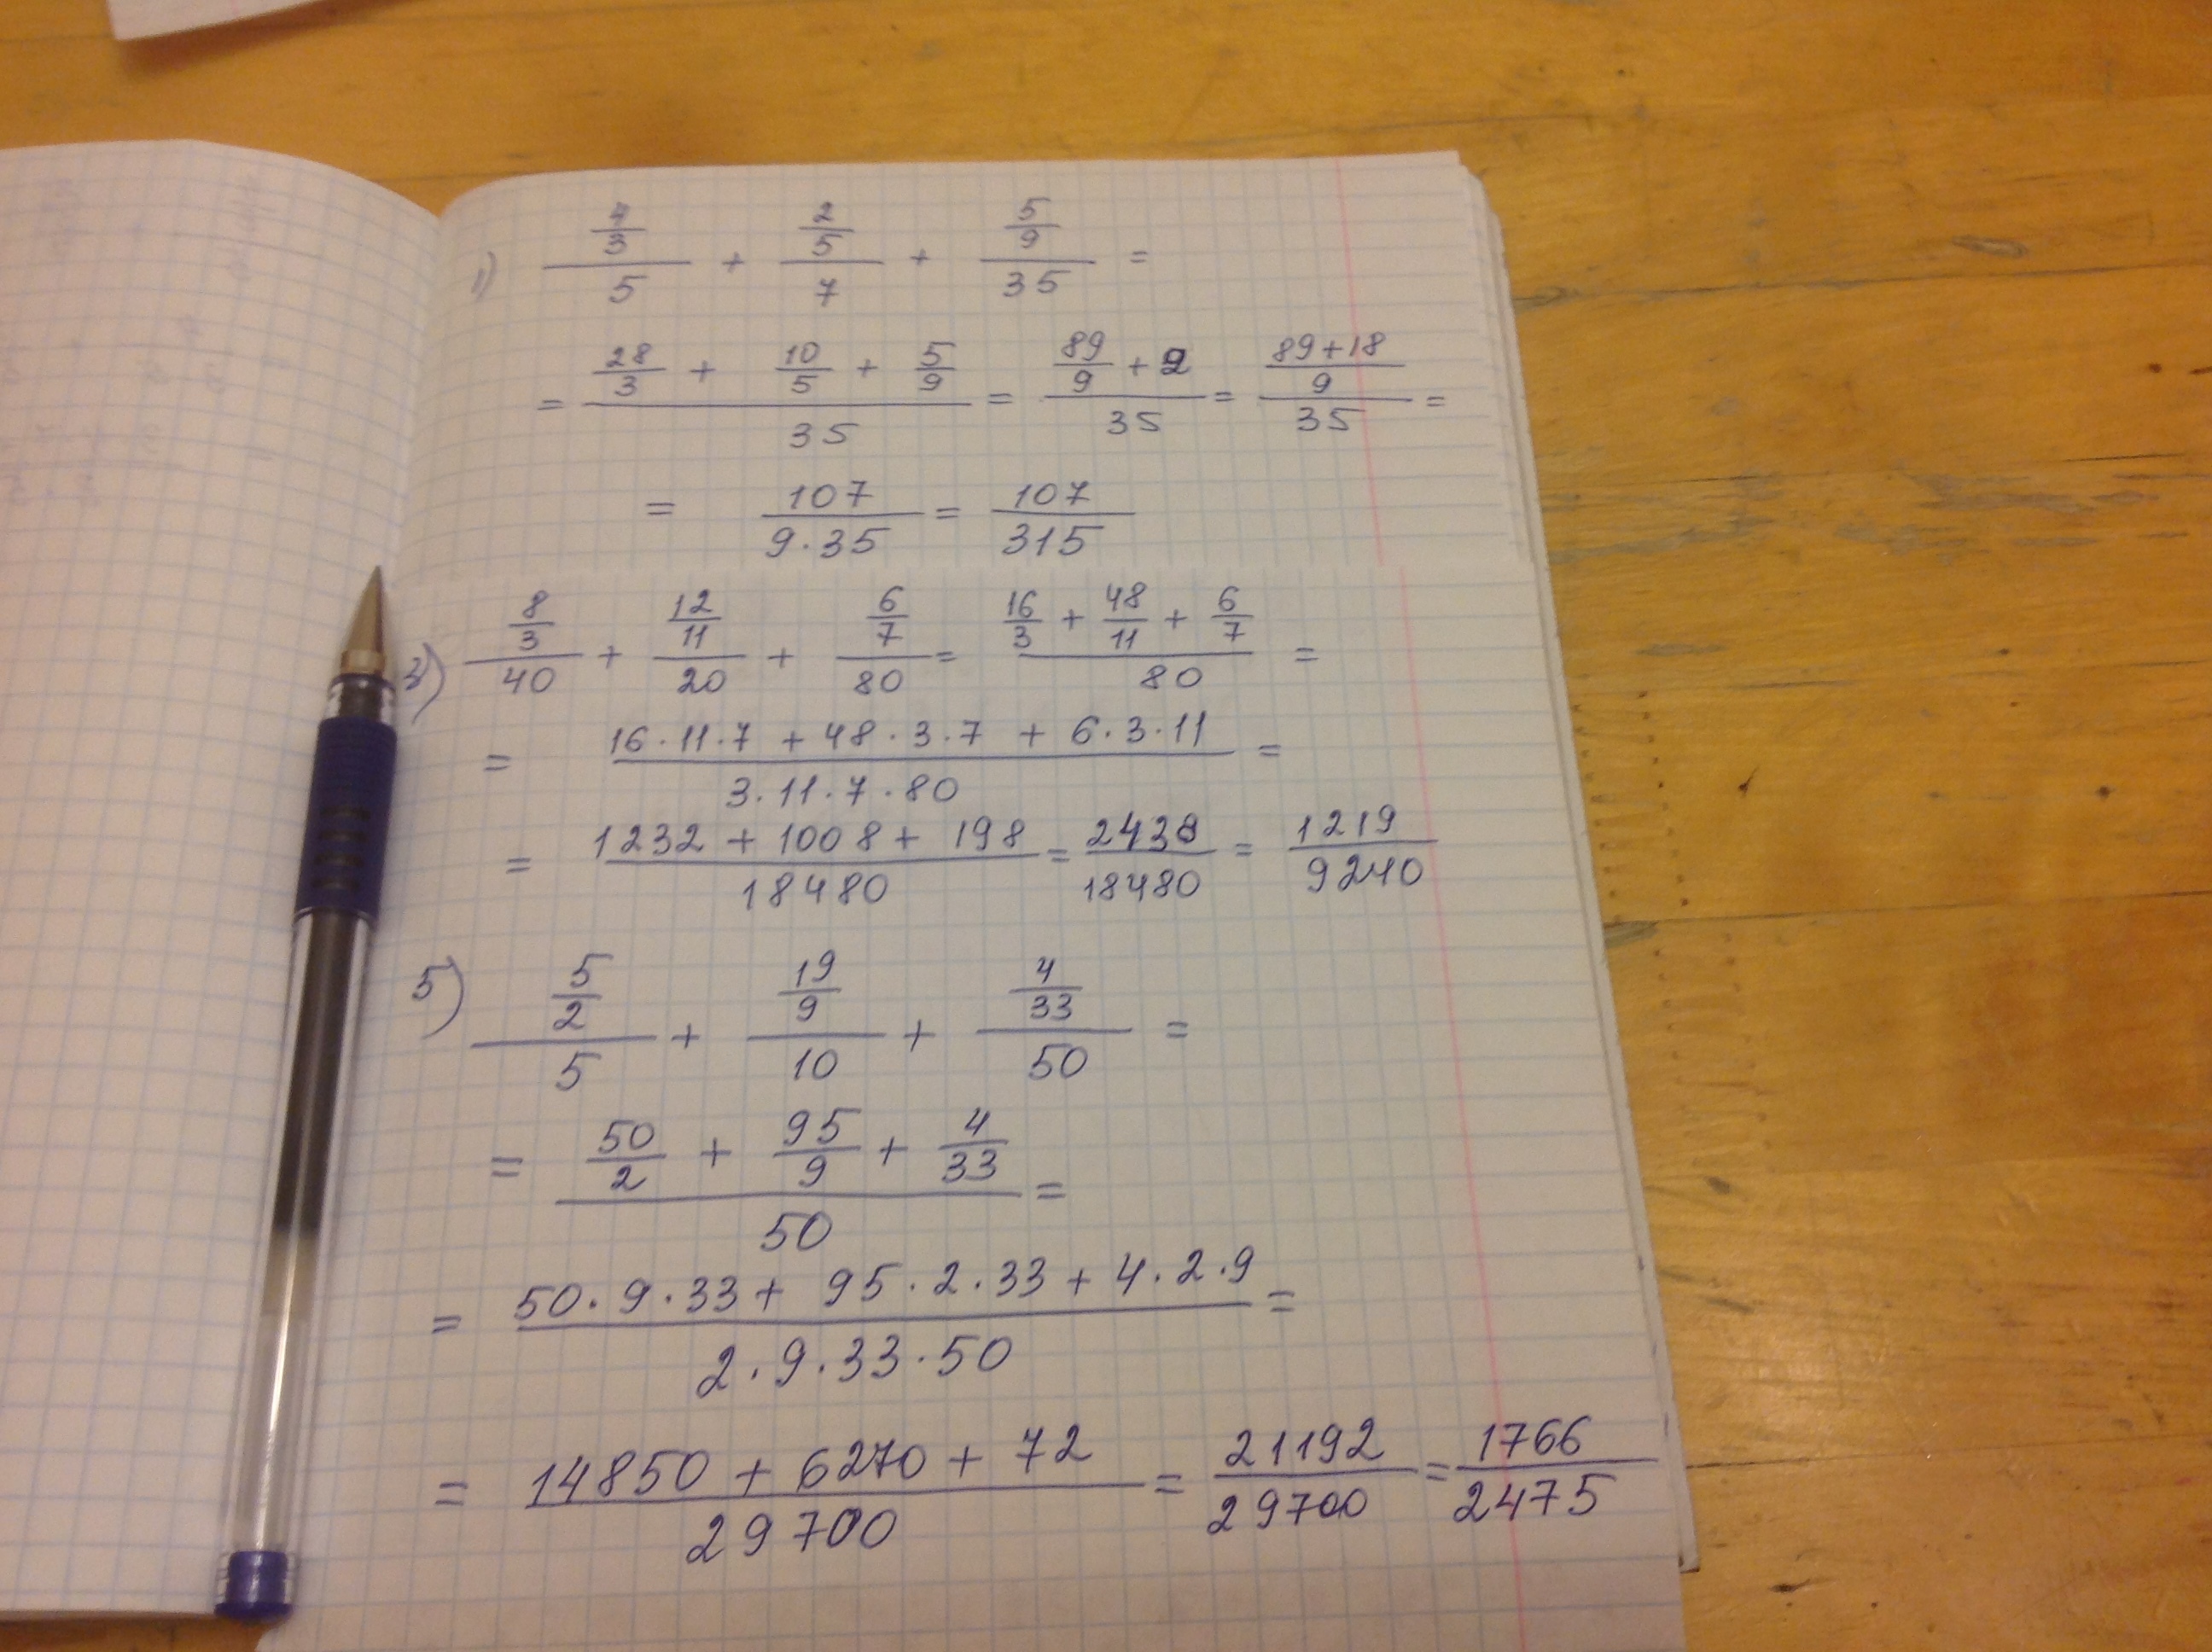 1) (4/3)/5 + (2/5)/7 + (5/9)/35 =
= (28/3 + 10/5 + 5/9)/35 = (89/9 + 2)/35 = ((89+18)/9)/35 =
= 107/(9·35) = 107/315
(8/3)/40 + (12/11)/20 + (6/7)/80 = (16/3 + 48/11 + 6/7)/80 =
= (16·11·7 + 48·3·7 + 6·3·11)/(3·11·7·80) =
= (1232 + 1008 + 198)/18480 = 2438/18480 = 1219/9240
5) (5/2)/5 + (19/9)/10 + (4/33)/50 =
= (50/2 + 95/9 + 4/33)/50 =
= (50·9·33 + 95·2·33 + 4·2·9)/(2·9·33·50) =
= (14850 + 6270 + 72)/29700 = 21192/29700 = 1766/2475